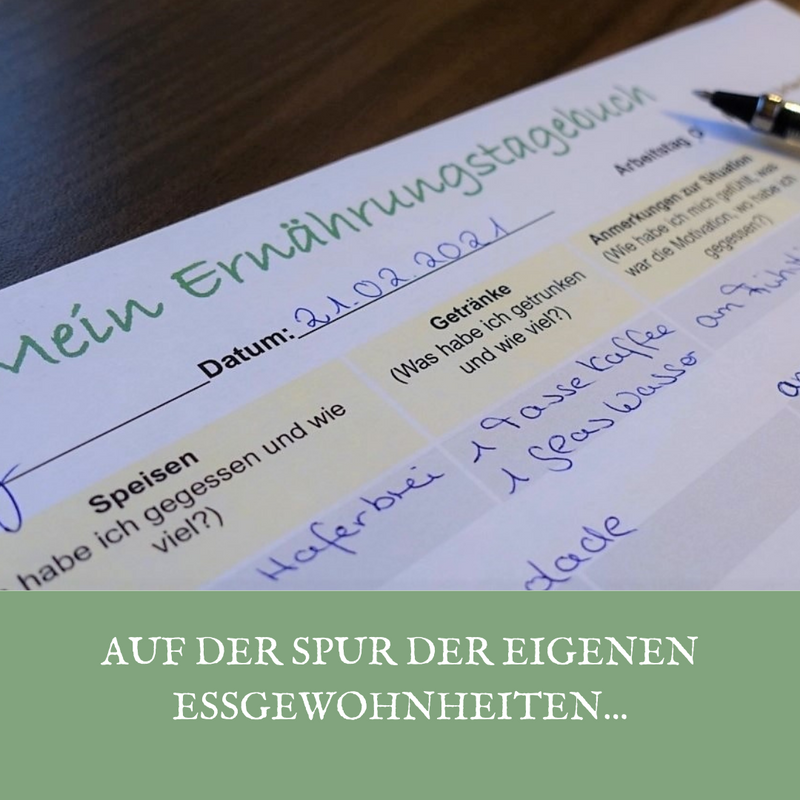 Mein Ernährungstagebuch
Datum: 21.02.2021
Arbeitstag
Speisen
habe ich gegessen und wie
viel?)
Getränke
(Was habe ich getrunken
und wie viel?)
Anmerkungen zur Situation
(Wie habe ich mich gefühlt, was
war die Motivation, wo habe ich
gegessen?)
Haferbrei
1 Tasse Kaffee
1 Glas Wasser
am
AUF DER SPUR DER EIGENEN
ESSGEWOHNHEITEN...